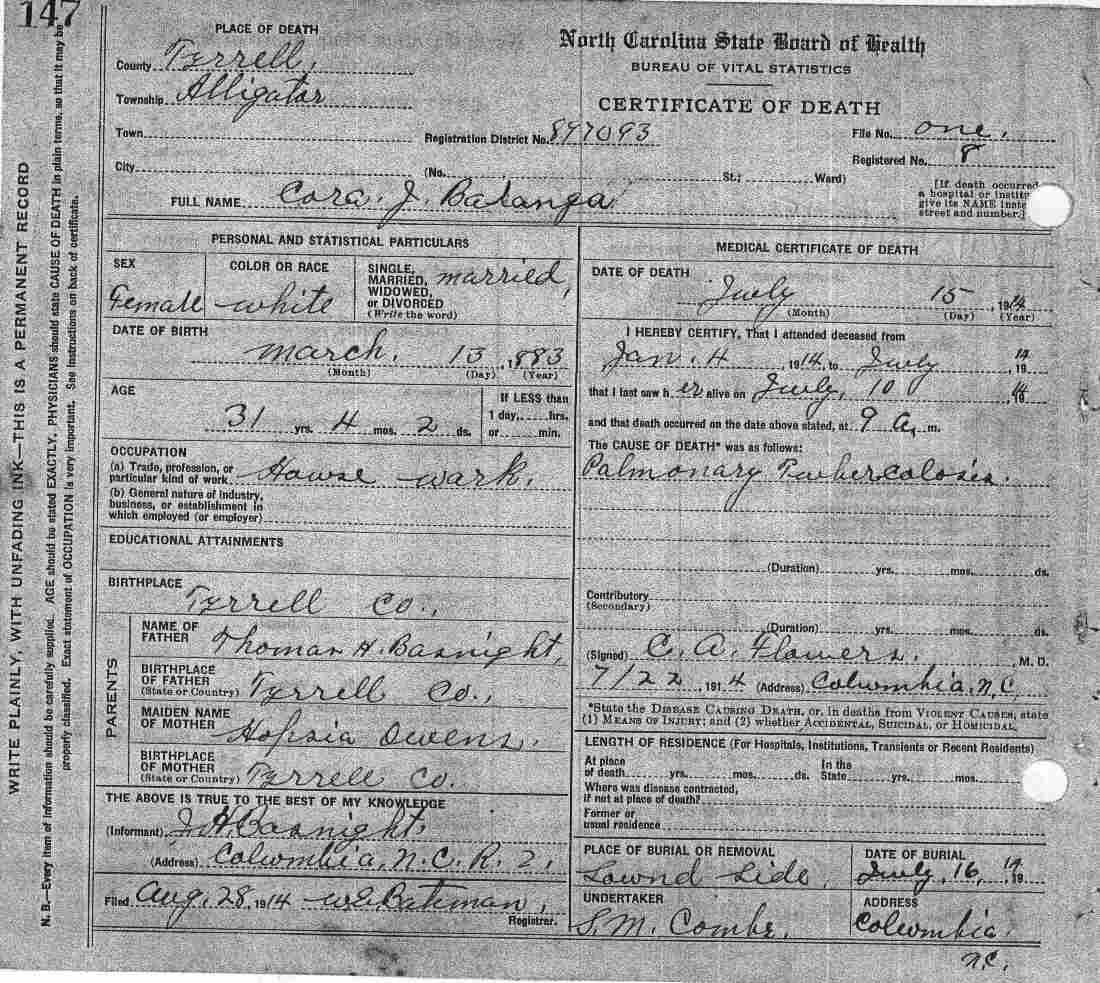 147
WRITE PLAINLY, WITH UNFADING INK—THIS IS A PERMANENT RECORD
N. B.—Every item of information should be carefully supplied. AGE should be stated EXACTLY. PHYSICIANS should state CAUSE OF DEATH in plain terms, so that it may be
properly classified. Exact statement of OCCUPATION is very important. See instructions on back of certificate.
PLACE OF DEATH
County Tyrrell,
Township Alligator
Town
City
North Carolina State Board of Health
BUREAU OF VITAL STATISTICS
CERTIFICATE OF DEATH
Registration District No. 897093
File No. one.
Registered No. 8
(No. St.; Ward)
[If death occurred
a hospital or institu
give its NAME inste
street and number.]
FULL NAME Cora. J.
PERSONAL AND STATISTICAL PARTICULARS
SEX
Female
COLOR OR RACE
white
SINGLE,
MARRIED,
WIDOWED,
or DIVORCED
(Write the word)
married,
DATE OF BIRTH
march. 13, 1883
(Month) (Day) (Year)
AGE
31 yrs. 4 mos. 2 ds.
If LESS than
1 day, hrs.
or min.
OCCUPATION
(a) Trade, profession, or
particular kind of work Howse wark.
(b) General nature of industry,
business, or establishment in
which employed (or employer)
EDUCATIONAL ATTAINMENTS
BIRTHPLACE
Tyrrell co.,
PARENTS
NAME OF
FATHER Thomas H. Basnight,
BIRTHPLACE
OF FATHER
(State or Country) Tyrrell co.,
MAIDEN NAME
OF MOTHER Owens.
BIRTHPLACE
OF MOTHER
(State or Country) Tyrrell co.
THE ABOVE IS TRUE TO THE BEST OF MY KNOWLEDGE
(Informant) J. H. Basnight.
(Address) Colwmbia, N.C. R. 2,
Filed Aug, 28, 1914 W.E. Bateman,
Registrar.
MEDICAL CERTIFICATE OF DEATH
DATE OF DEATH
Jwly 15, 1914
(Month) (Day) (Year)
I HEREBY CERTIFY, That I attended deceased from
Jan. 4 1914, to Jwly 14, 19
that I last saw h er alive on Jwly, 10 14
and that death occurred on the date above stated, at 9 A. m.
The CAUSE OF DEATH* was as follows:
Palmonary Twbercolosis.
(Duration) yrs. mos. ds.
Contributory
(Secondary)
(Duration) yrs. mos. ds.
(Signed) C. A. Flowers. M. D.
7/22, 1914 (Address) Colwmbia, N.C
*State the DISEASE CAUSING DEATH, or, in deaths from VIOLENT CAUSES, state
(1) MEANS OF INJURY; and (2) whether ACCIDENTAL, SUICIDAL, or HOMICIDAL.
LENGTH OF RESIDENCE (For Hospitals, Institutions, Transients or Recent Residents)
At place
of death yrs. mos. ds.
In the
State yrs. mos.
Where was disease contracted,
if not at place of death?
Former or
usual residence
PLACE OF BURIAL OR REMOVAL
Sownd Side,
DATE OF BURIAL
Jwly, 16, 14 19
UNDERTAKER
S. M. Combs.
ADDRESS
Colwmbia
N.C.